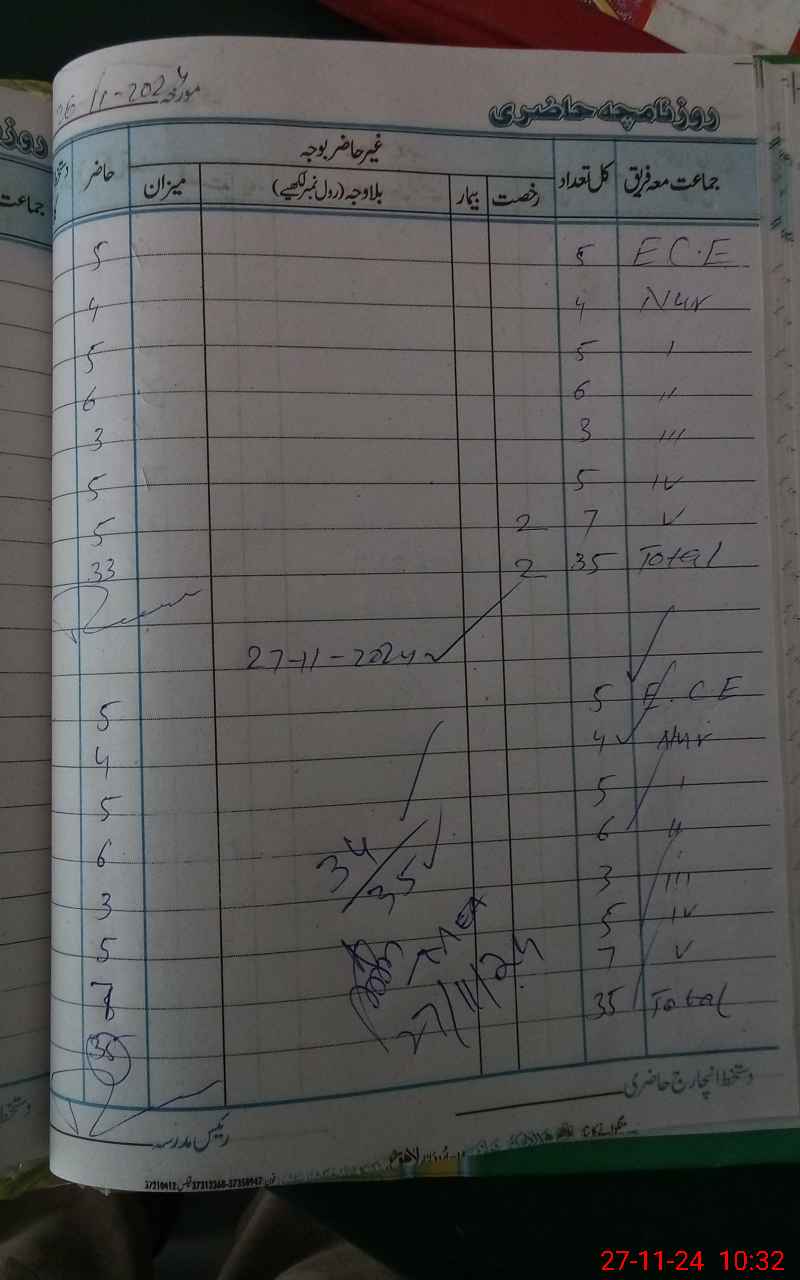 روزنامچہ حاضری مورخہ 26-11-2024
جماعت معہ فریق کل تعداد غیر حاضر بوجہ حاضر
رخصت بیمار بلا وجہ (رول نمبر لکھیے) میزان
E.C.E 5 5
Nur 4 4
I 5 5
II 6 6
III 3 3
IV 5 5
V 7 2 5
Total 35 2 33
27-11-2024
E.C.E 5 5
Nur 4 4
I 5 5
II 6 6
III 3 3
IV 5 5
V 7 7
Total 35 35
34/35
27/11/24
دستخط انچارج حاضری
رئیس مدرسہ
27-11-24 10:32